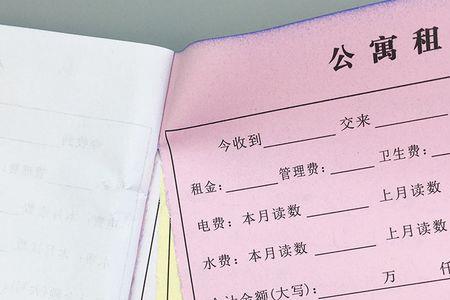 公寓租
今收到________交来________
租金：________管理费：________卫生费：
电费：本月读数________上月读数
水费：本月读数________上月读数
金额(大写)：________万________仟